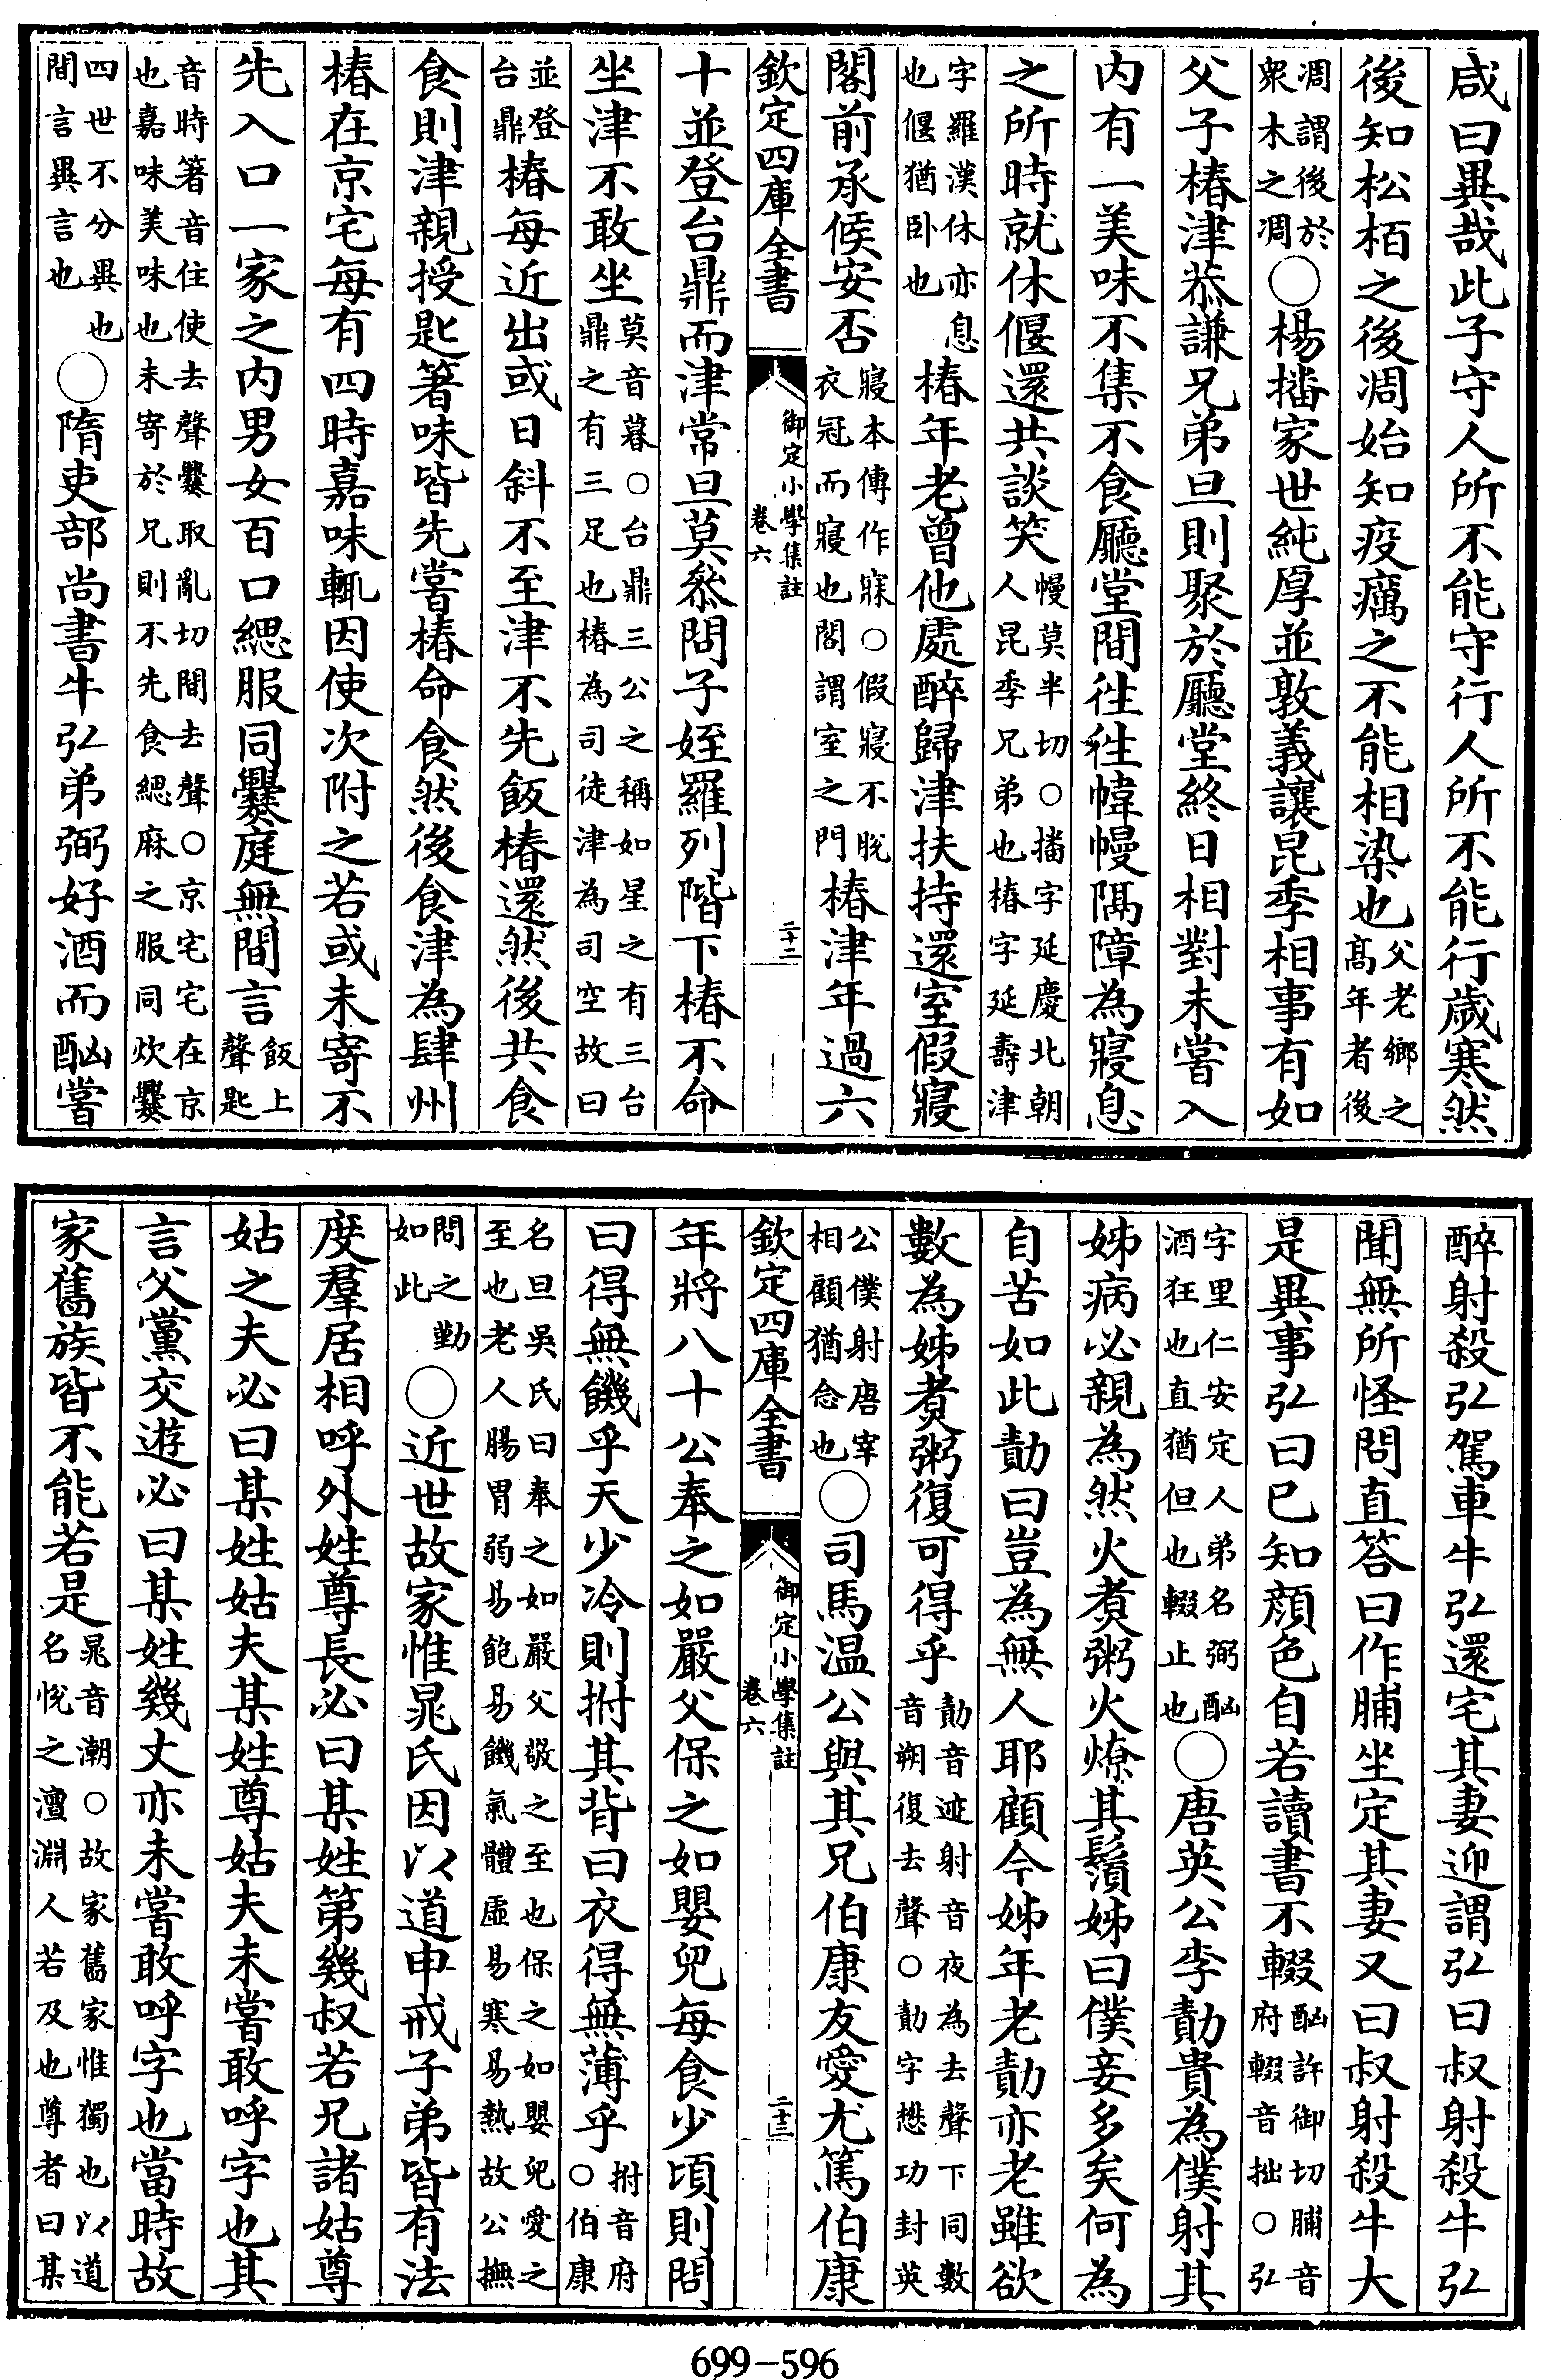 咸曰異哉此子守人所不能守行人所不能行歲寒然
後知松栢之後凋始知疫癘之不能相染也父老鄉之高年者後
凋謂後於衆木之凋○楊播家世純厚並敦義讓昆季相事有如
父子椿津恭謙兄弟旦則聚於廳堂終日相對未嘗入
内有一美味不集不食廳堂間徃徃幃幔隔障為寢息
之所時就休偃還共談笑幔莫半切○播字延慶北朝人昆季兄弟也椿字延壽津
字羅漢休亦息也偃猶卧也椿年老曾他處醉歸津扶持還室假寢
閤前承候安否寢本傳作寐○假寢不脫衣冠而寢也閤謂室之門椿津年過六
欽定四庫全書
御定小學集註
卷六
二十二
十並登台鼎而津常旦莫叅問子姪羅列階下椿不命
坐津不敢坐莫音暮○台鼎三公之稱如星之有三台鼎之有三足也椿為司徒津為司空故曰
並登台鼎椿每近出或日斜不至津不先飯椿還然後共食
食則津親授匙箸味皆先嘗椿命食然後食津為肆州
椿在京宅每有四時嘉味輒因使次附之若或未寄不
先入口一家之内男女百口緦服同爨庭無間言飯上聲匙
音時箸音住使去聲爨取亂切間去聲○京宅宅在京也嘉味美味也未寄於兄則不先食緦麻之服同炊爨
四世不分異也間言異言也○隋吏部尚書牛弘弟弼好酒而酗嘗
醉射殺弘駕車牛弘還宅其妻迎謂弘曰叔射殺牛弘
聞無所怪問直答曰作脯坐定其妻又曰叔射殺牛大
是異事弘曰已知顔色自若讀書不輟酗許御切脯音府輟音拙○弘
字里仁安定人弟名弼酗酒狂也直猶但也輟止也○唐英公李勣貴為僕射其
姊病必親為然火煮粥火燎其鬚姊曰僕妾多矣何為
自苦如此勣曰豈為無人耶顧今姊年老勣亦老雖欲
數為姊煮粥復可得乎勣音迹射音夜為去聲下同數音朔復去聲○勣字懋功封英
公僕射唐宰相顧猶念也○司馬温公與其兄伯康友愛尤篤伯康
欽定四庫全書
御定小學集註
卷六
二十三
年將八十公奉之如嚴父保之如嬰兒每食少頃則問
曰得無饑乎天少冷則拊其背曰衣得無薄乎拊音府○伯康
名旦吳氏曰奉之如嚴父敬之至也保之如嬰兒愛之至也老人腸胃弱易飽易饑氣體虛易寒易熱故公撫
問之勤如此○近世故家惟晁氏因以道申戒子弟皆有法
度羣居相呼外姓尊長必曰某姓第幾叔若兄諸姑尊
姑之夫必曰某姓姑夫某姓尊姑夫未嘗敢呼字也其
言父黨交遊必曰某姓幾丈亦未嘗敢呼字也當時故
家舊族皆不能若是晁音潮○故家舊家惟獨也以道名悅之澶淵人若及也尊者曰某
699-596